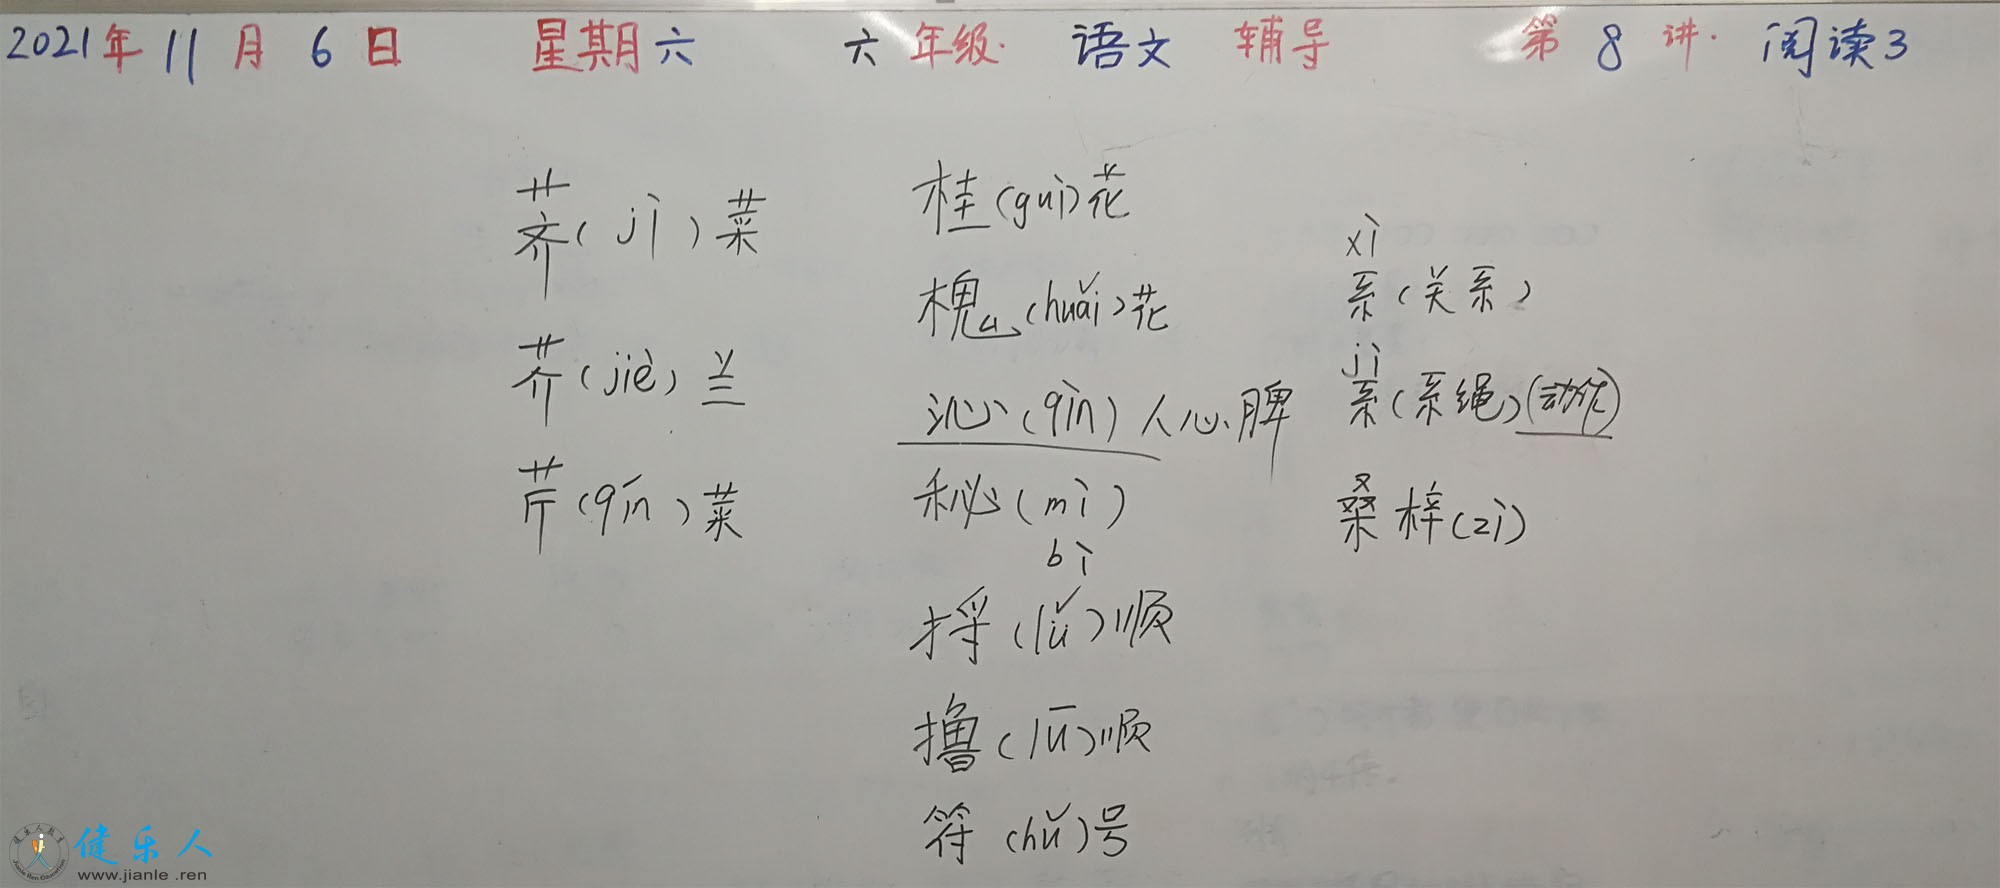 2021年11月6日 星期六 六年级· 语文 辅导 第8讲· 阅读3
荠(jì)菜
芥(jiè)兰
芹(qín)菜
桂(guì)花
槐(huǎi)花
沁(qìn)人心脾
秘(mì)
bì
捋(lǚ)顺
撸(lū)顺
符(hǔ)号
xì
系(关系)
jì
系(系绳)(动作)
桑梓(zǐ)
健乐人
www.jianle.ren